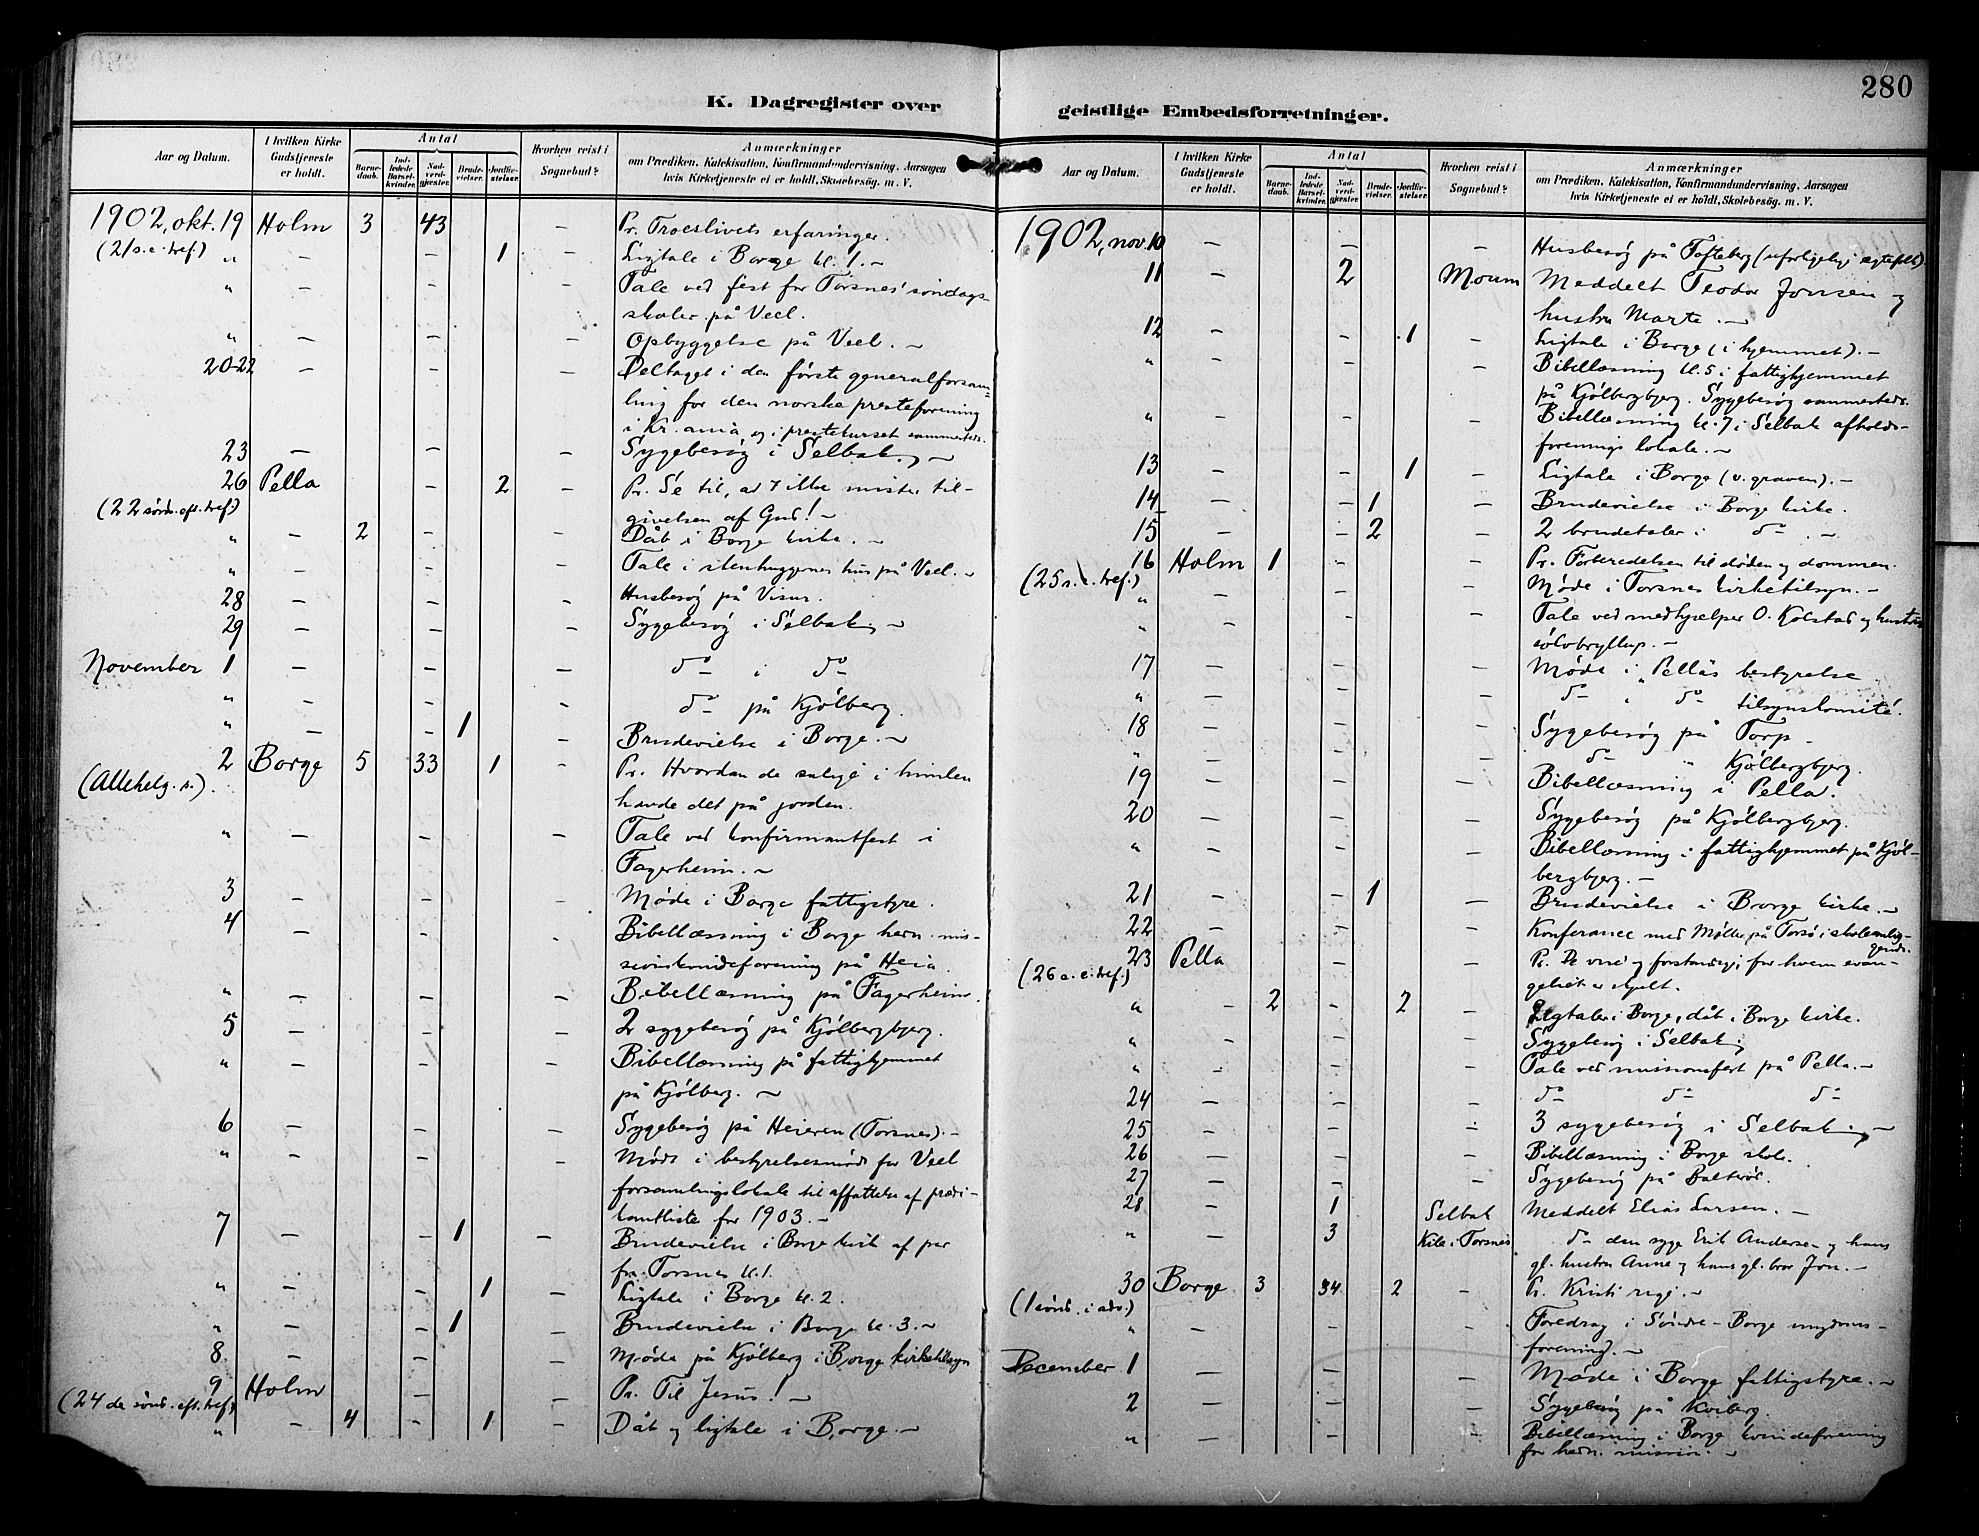 280
K. Dagregister over
geistlige Embedsforretninger.
Aar og Datum.
I hvilken Kirke Gudstjeneste er holdt.
Antal
Barne-daab.
Ind-ledede Barsel-kvinder.
Nad-verd-gjester.
Brude-vielser.
Jordfæ-stelser.
Hvorhen reist i Sognebud?
Anmærkninger
om Prædiken, Katekisation, Konfirmandundervisning, Aarsagen
hvis Kirketjeneste ei er holdt, Skolebesøg. m. V.
1902, okt. 19 Holm 3 43 – Pr. Troeslivets erfaringer.
(21 s. e. tref.) " – – 1 – Ligtale i Borge kl. 1. –
" – – – Tale ved fest for Torsnes' søndags-
skoler på Veel.
" – – – Opbyggelse på Veel. –
20-22 – – – Deltaget i den første generalforsam-
ling for den norske presteforening
i Kr.ania og i prestekurset sammesteds.
23 – – – Sygebesøg i Selbak. –
26 Pella – 2 – Pr. Se til, at I ikke mister til-
(22 sønd. eft. tref.) givelsen af Gud! –
" – 2 – – Dåb i Borge kirke. –
" – – – Tale i stenhuggernes hus på Veel. –
28 – – – Husbesøg på Visur.
29 – – – Sygebesøg i Selbak. –
November 1 – – – do i do
" – – – do på Kjölberg.
" – – 1 – Brudevielse i Borge. –
2 Borge 5 33 1 – Pr. Hvordan de salige i himlen
(Allehelg. s.) havde det på jorden.
" – – – Tale ved konfirmantfest i
Fagerheim. –
3 – – – Møde i Borge fattigstyre.
4 – – – Bibellæsning i Borge hedn. mis-
sionskvindeforening på Heia.
" – – – Bibellæsning på Fagerheim.
5 – – – 2 sygebesøg på Kjölbergbjerg.
" – – – Bibellæsning på fattighjemmet
på Kjölberg. –
6 – – – Sygebesøg på Heieren (Torsnes). –
" – – – Møde i bestyrelsesmøde for Veel
forsamlingslokale til affattelse af prædi-
kantliste for 1903. –
7 – – 1 – Brudevielse i Borge kirke af par
fra Torsnes kl. 1.
" – – 1 – Ligtale i Borge kl. 2.
" – – 1 – Brudevielse i Borge kl. 3. –
8 – – – Møde på Kjölberg i Borge kirketilsyn
9 Holm – – Pr. Til Jesus! –
(24 de sønd. eft. tref.) " – 4 – 1 – Dåb og ligtale i Borge. –
Aar og Datum.
I hvilken Kirke Gudstjeneste er holdt.
Antal
Barne-daab.
Ind-ledede Barsel-kvinder.
Nad-verd-gjester.
Brude-vielser.
Jordfæ-stelser.
Hvorhen reist i Sognebud?
Anmærkninger
om Prædiken, Katekisation, Konfirmandundervisning, Aarsagen
hvis Kirketjeneste ei er holdt, Skolebesøg. m. V.
1902, nov. 10 – – – Husbesøg på Tofteberg (uforligelig egtefolk).
11 – 2 Moum Meddelt Teodor Jonsen og
hustru Marte. –
12 – – 1 – Ligtale i Borge (i hjemmet). –
" – – – Bibellæsning kl. 5 i fattighjemmet
på Kjölbergbjerg. Sygebesøg sammesteds.
" – – – Bibellæsning kl. 7 i Selbak afholds-
forenings lokale. –
13 – – 1 – Ligtale i Borge (v. graven). –
14 – – 1 – Brudevielse i Borge kirke.
15 – – 2 – 2 brudetaler i do. –
16 Holm 1 – – Pr. Forberedelsen til døden og dommen.
(25 s. e. tref.) " – – – Møde i Torsnes kirketilsyn. –
" – – – Tale ved medhjælper O. Kolstad og hustrus
sølvbryllup. –
17 – – – Møde i Pellas bestyrelse
" – – – do " do tilsynskomité.
18 – – – Sygebesøg på Torp –
" – – – do " Kjölbergbjerg.
19 – – – Bibellæsning i Pella.
20 – – – Sygebesøg på Kjölbergbjerg.
" – – – Bibellæsning i fattighjemmet på Kjöl-
bergbjerg. –
21 – – 1 – Brudevielse i Borge kirke. –
22 – – – Konferance med Møller på Torsø i skoleanlig-
gende.
23 Pella – – Pr. De vise og forstandige, for hvem evan-
(26 s. e. tref.) geliet er skjult.
" – 2 – 2 – Ligtaler i Borge, dåb i Borge kirke.
" – – – Sygebesøg i Selbak.
" – – – Tale ved missionsfest på Pella. –
24 – – – do do do
25 – – – 3 sygebesøg i Selbak. –
26 – – – Bibellæsning i Borge skole.
27 – – – Sygebesøg på
28 – 1 Selbak Meddelt Elias Larsen. –
" – 3 Kile i Torsnes do den syge Erik Andersen og hans
gl. hustru Anne og hans gl. bror Jon. –
30 Borge 3 34 2 – Pr. Kristi rige. –
(1 sønd. i adv.) " – – – Foredrag i Søndre-Borge ungdoms-
forening. –
December 1 – – – Møde i Borge fattigstyre. –
2 – – – Sygebesøg på
" – – – Bibellæsning i Borge kvindeforening
for hedn. mission. –